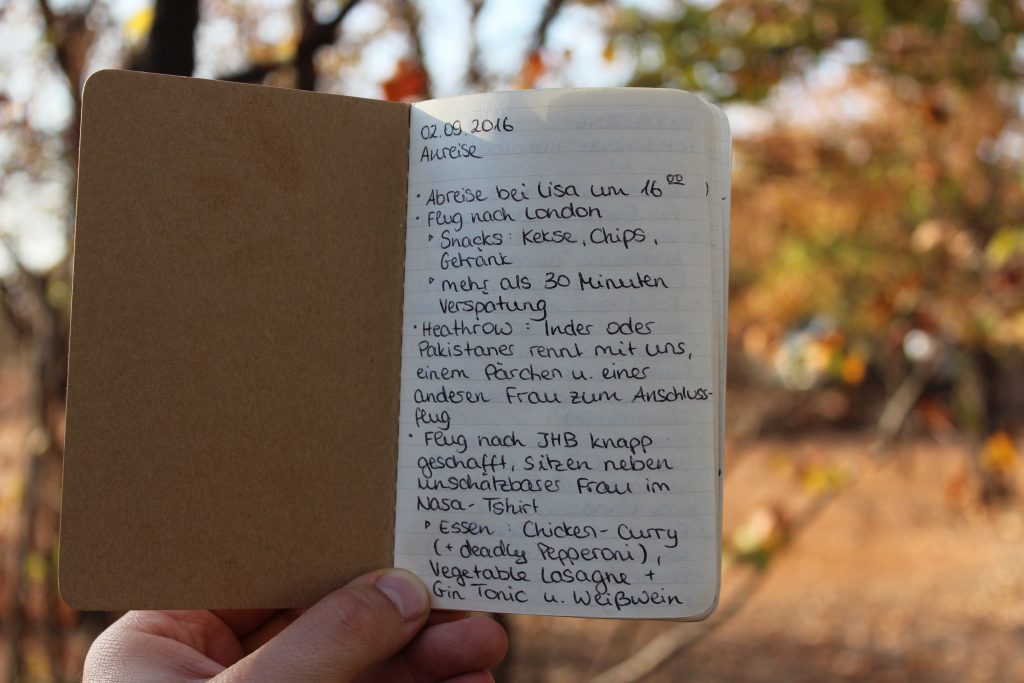 02.09.2016
Anreise
· Abreise bei Lisa um 16⁰⁰
· Flug nach London
▸ Snacks: Kekse, Chips,
Getränk
▸ mehr als 30 Minuten
Verspätung
· Heathrow: Inder oder
Pakistaner rennt mit uns,
einem Pärchen u. einer
anderen Frau zum Anschluss-
flug
· Flug nach JHB knapp
geschafft, sitzen neben
unschätzbarer Frau im
Nasa-Tshirt
▸ Essen: Chicken-Curry
(+ deadly Pepperoni),
Vegetable Lasagne +
Gin Tonic u. Weißwein